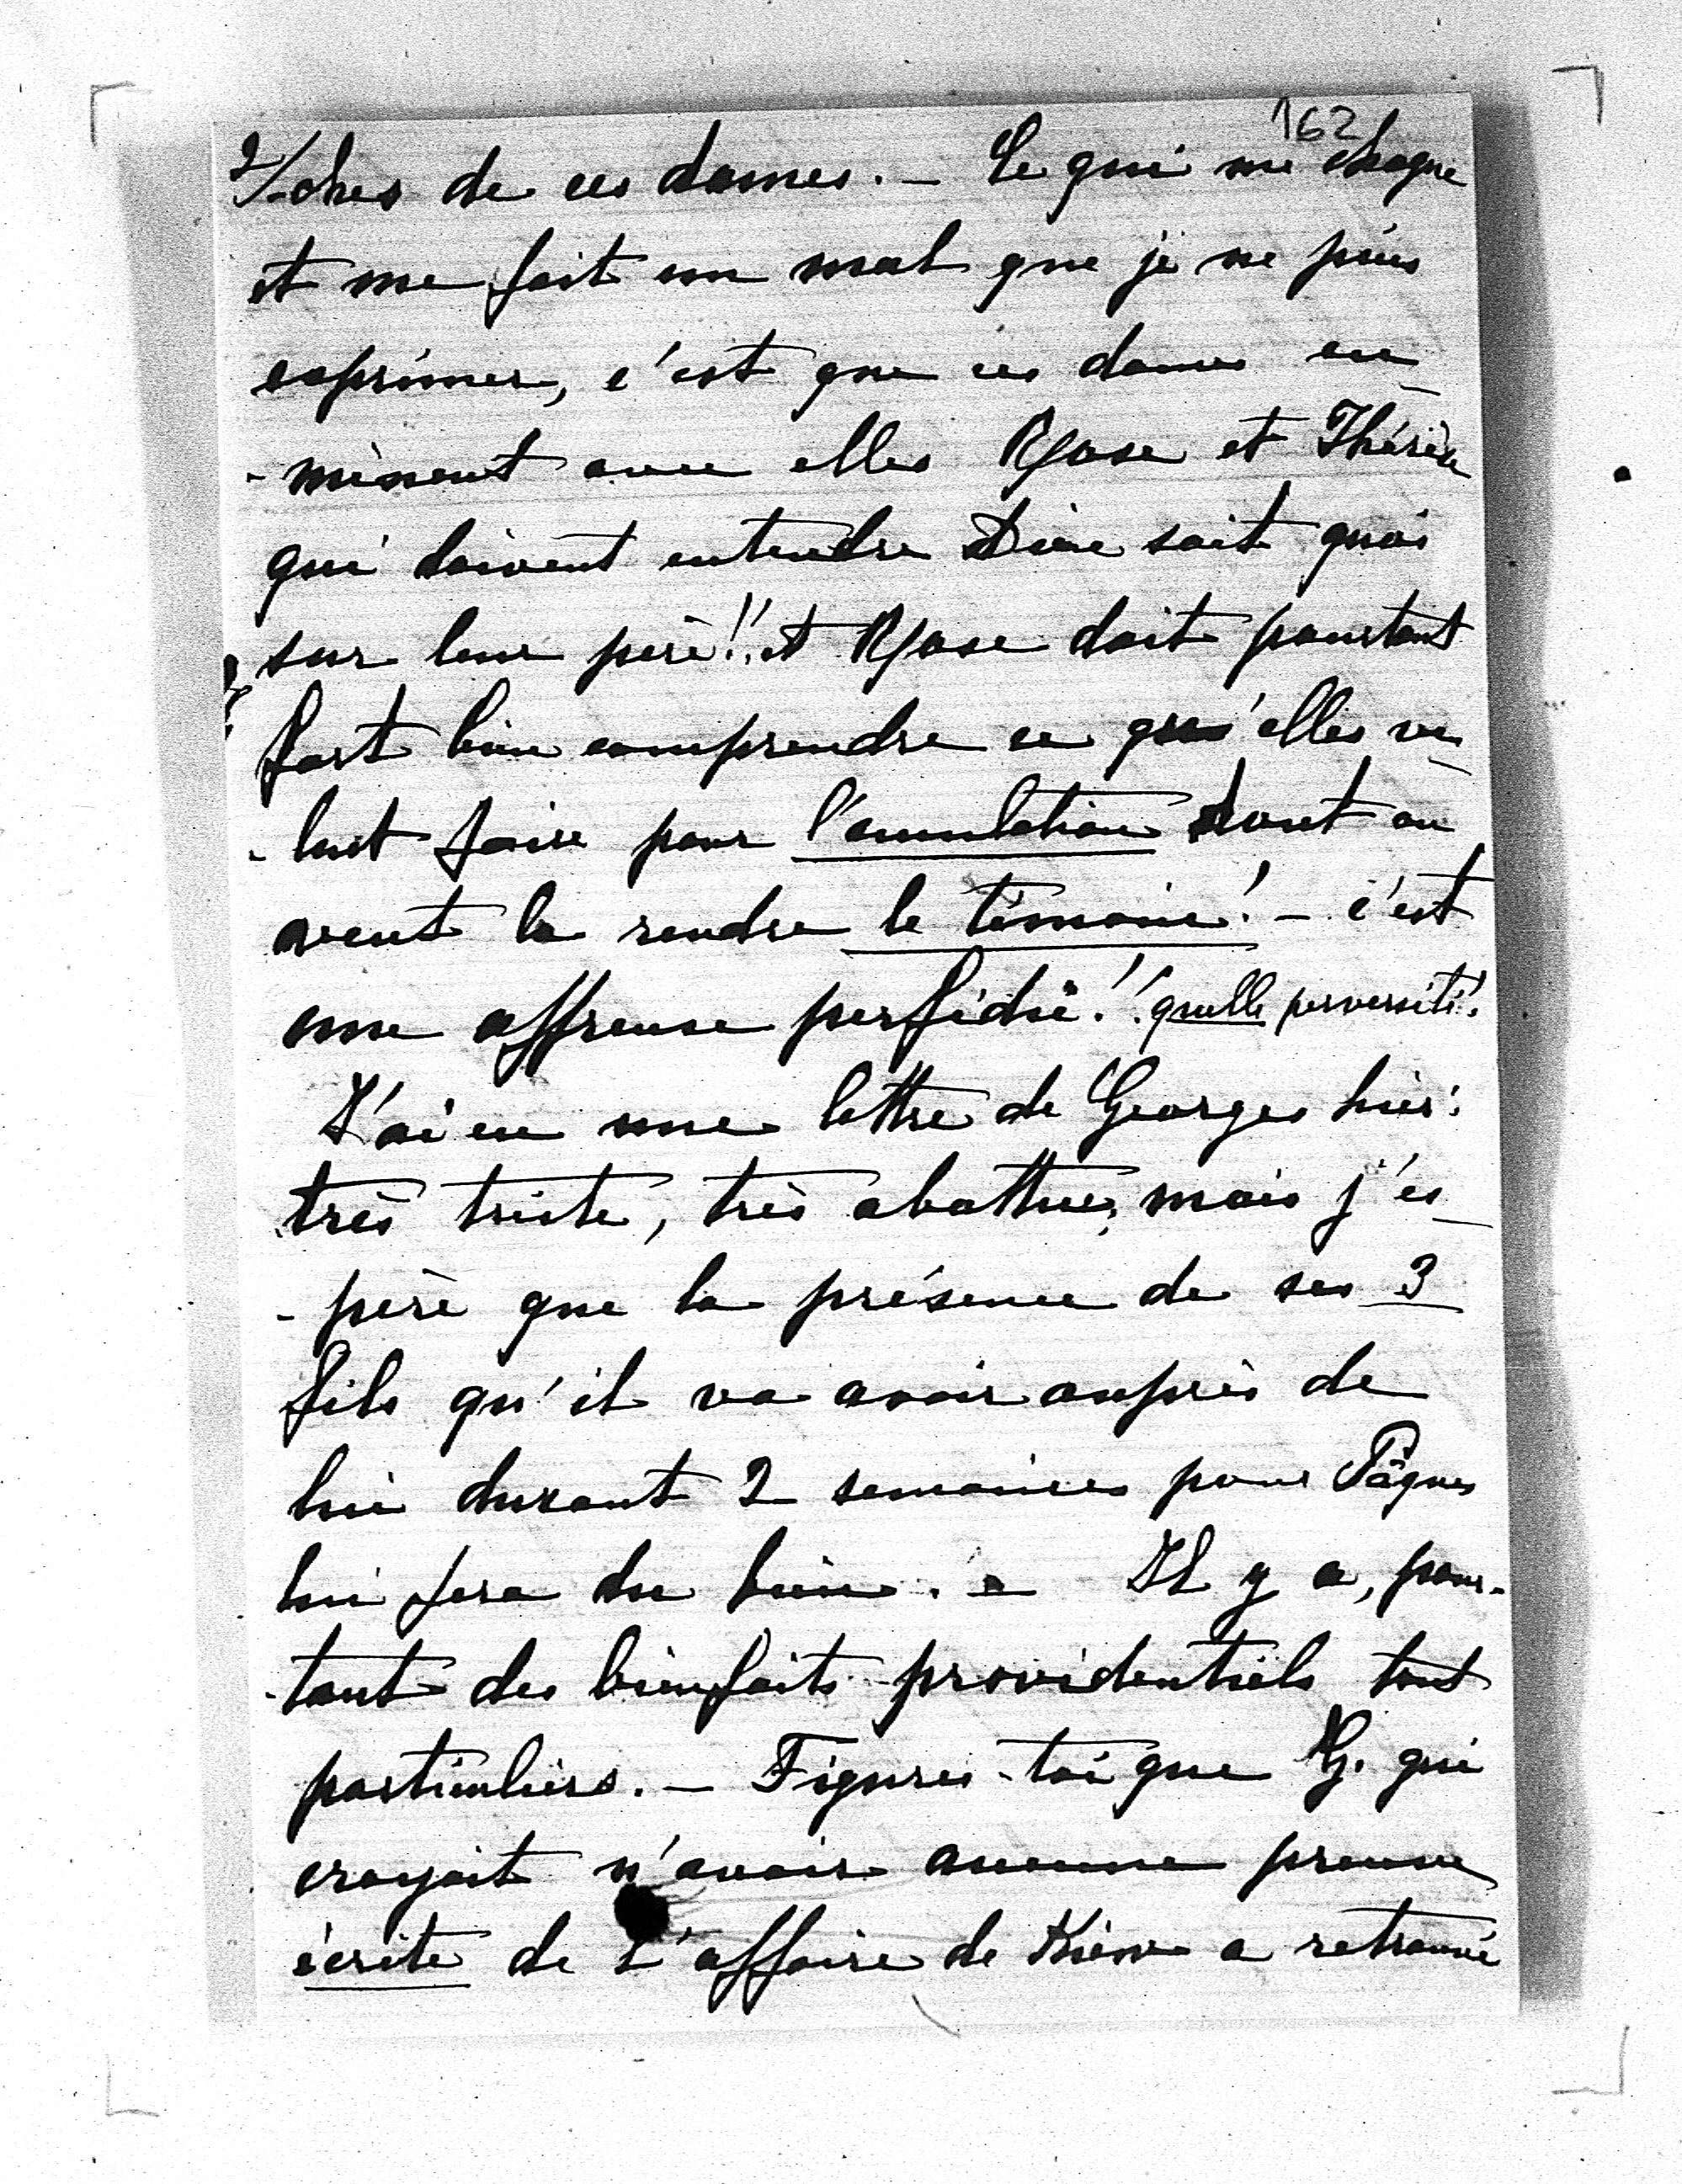 162
2/-ches de ces dames. - Ce qui me choque
et me fait un mal que je ne puis
exprimer, c'est que ces dames em-
-mènent avec elles Rose et Thérèse
qui doivent entendre Dieu sait quoi
sur leur père!! et Rose doit pourtant
fort bien comprendre ce qu'elles veu-
-lent faire pour l'annulation dont on
veut la rendre le témoin! - c'est
une affreuse perfidie!! quelle perversité!!
J'ai eu une lettre de Georges hier:
très triste, très abattue, mais j'es-
-père que la présence de ses 3
fils qu'il va avoir auprès de
lui durant 2 semaines pour Pâques
lui fera du bien. - Il y a, pour-
-tant des bienfaits providentiels tout
particuliers. - Figures-toi que G. qui
croyait n'avoir aucune preuve
écrite de l'affaire de Kiew a retrouvé